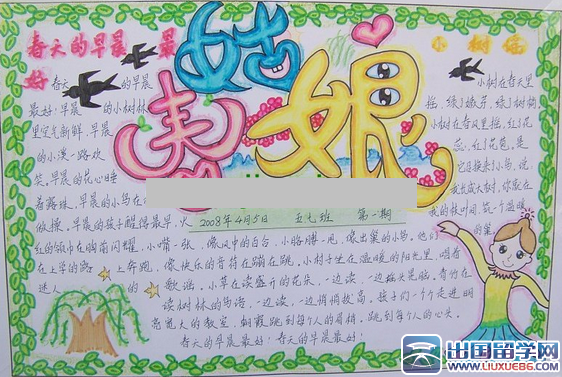 春天的早晨 最好
春姑娘
小树谣
春天 的早晨
最好!早晨 的小树林
里空气新鲜,早晨
的小溪一路欢
笑。早晨的花心睡
着露珠。早晨的小鸟在
做操。早晨的孩子醒得最早。火
红的领巾在胸前闪耀,小嘴一张,像风中的百合,小胳膊一甩,像出巢的小鸟。他们
在上学的路上奔跑,像快乐的音符在蹦在跳。小村子坐在温暖的阳光里,唱着
迷人 的 歌谣。小草在读盛开的花朵,一边读,一边摇头晃脑。青竹在
读树林的鸟语,一边读,一边悄悄拔高。孩子们一个个走进明
亮宽大的教室,朝霞跳到每个人的眉梢,跳到每个人的心头。
春天的早晨最好!春天的早晨最好!
2008年4月5日 五七班 第一期
小树在春风里
摇,绿了嫩芽,绿了树梢
小树在春风里摇,红了花
蕊,红了花苞。是
我长成大树,你就在
我的枝叶间,筑一个温暖
的巢。
出国留学网
www.liuxue86.com